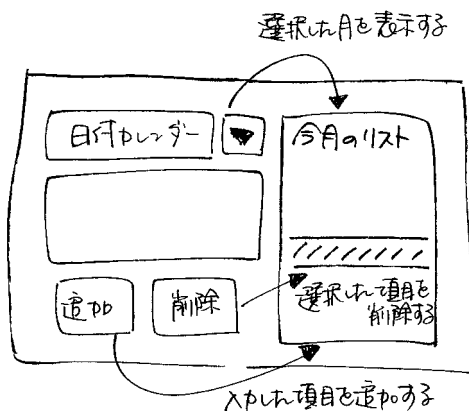 選択した月を表示する
日付カレンダー
今月のリスト
追加
削除
選択した項目を
削除する
入力した項目を追加する